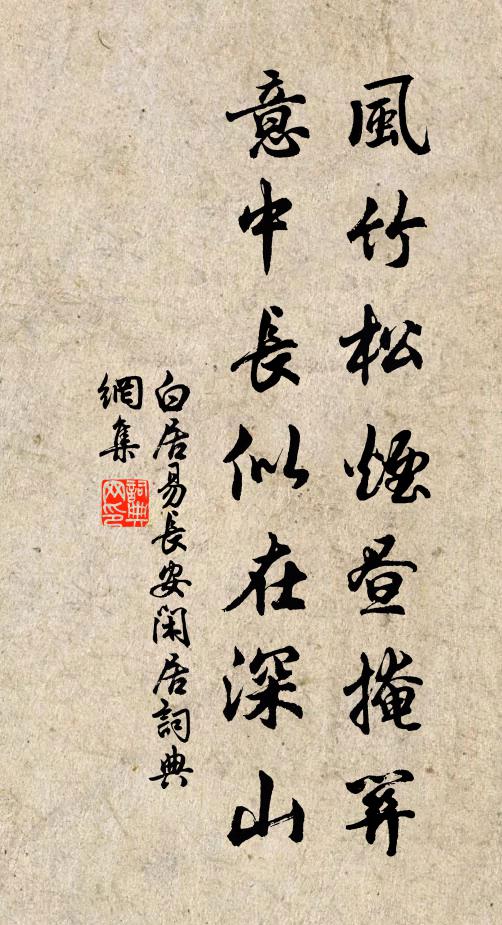 風竹松煙昼掩關
意中長似在深山
白居易長安閑居詞典
網集
詞典
网印